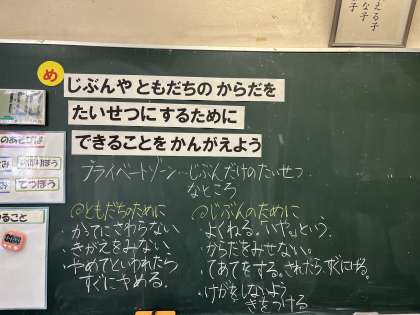 える子
な子
子
め
じぶんや ともだちの からだを
たいせつに するために
できることを かんがえよう
プライベートゾーン…じぶんだけのたいせつ
なところ
のあそびば
のぼりぼう
てつぼう
ること
@ともだちのために
・かってにさわらない
・きがえをみない、
・やめてといわれたら
すぐにやめる。
@じぶんのために
・よくねる。いやっという。
・からだをみせない。
・てあてをする。されたら、すぐにげる。
・けがをしないよう
きをつける